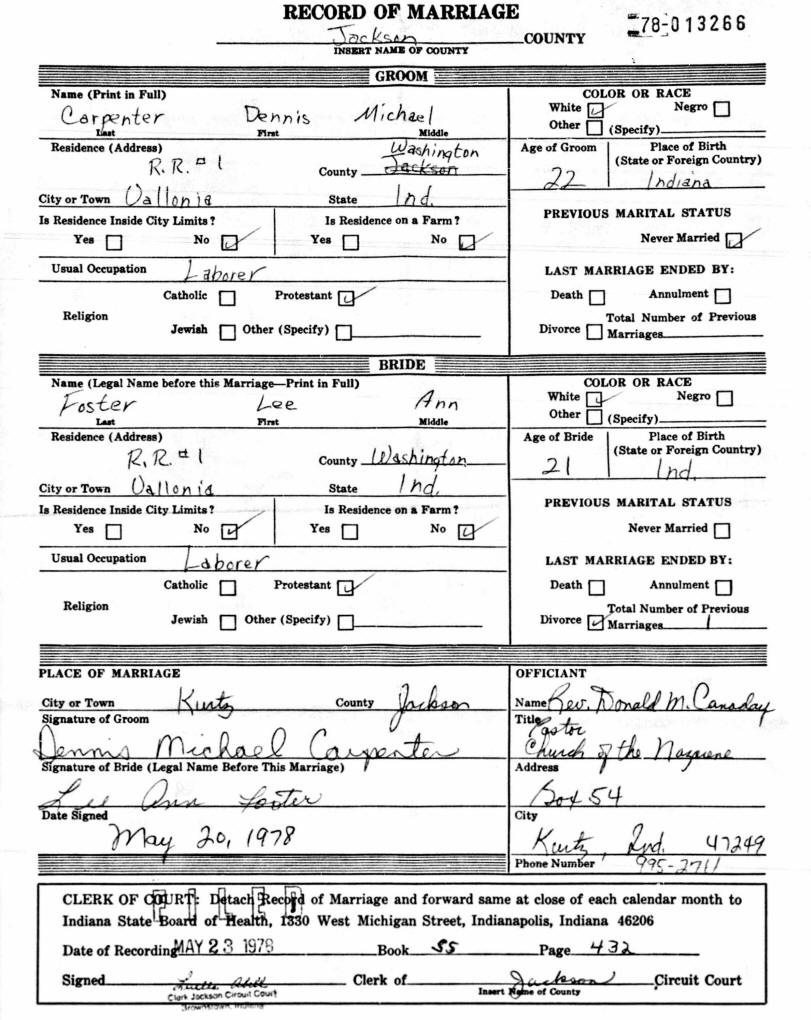 RECORD OF MARRIAGE
78-013266
Jackson COUNTY
INSERT NAME OF COUNTY
GROOM
Name (Print in Full)
Carpenter Dennis Michael
Last First Middle
COLOR OR RACE
White ☑ Negro ☐
Other ☐ (Specify)
Residence (Address)
R.R. #1 County Washington Jackson
Age of Groom
22
Place of Birth
(State or Foreign Country)
Indiana
City or Town Vallonia State Ind.
Is Residence Inside City Limits? Is Residence on a Farm?
Yes ☐ No ☑ Yes ☐ No ☑
PREVIOUS MARITAL STATUS
Never Married ☑
Usual Occupation Laborer
LAST MARRIAGE ENDED BY:
Death ☐ Annulment ☐
Religion
Catholic ☐ Protestant ☑
Jewish ☐ Other (Specify) ☐
Total Number of Previous
Divorce ☐ Marriages
BRIDE
Name (Legal Name before this Marriage—Print in Full)
Foster Lee Ann
Last First Middle
COLOR OR RACE
White ☑ Negro ☐
Other ☐ (Specify)
Residence (Address)
R.R. #1 County Washington
Age of Bride
21
Place of Birth
(State or Foreign Country)
Ind.
City or Town Vallonia State Ind.
Is Residence Inside City Limits? Is Residence on a Farm?
Yes ☐ No ☑ Yes ☐ No ☑
PREVIOUS MARITAL STATUS
Never Married ☐
Usual Occupation Laborer
LAST MARRIAGE ENDED BY:
Death ☐ Annulment ☐
Religion
Catholic ☐ Protestant ☑
Jewish ☐ Other (Specify) ☐
Total Number of Previous
Divorce ☑ Marriages 1
PLACE OF MARRIAGE
City or Town Kurtz County Jackson
Signature of Groom
Dennis Michael Carpenter
Signature of Bride (Legal Name Before This Marriage)
Lee Ann Foster
Date Signed
May 20, 1978
OFFICIANT
Name Rev. Donald M. Canaday
Title Pastor
Church of the Nazarene
Address
Box 54
City
Kurtz, Ind. 47249
Phone Number 995-2711
CLERK OF COURT: Detach Record of Marriage and forward same at close of each calendar month to
Indiana State Board of Health, 1330 West Michigan Street, Indianapolis, Indiana 46206
Date of Recording MAY 23 1978 Book 55 Page 432
Signed Clerk of Jackson Circuit Court
Clerk Jackson Circuit Court Insert Name of County
Brownstown, Indiana